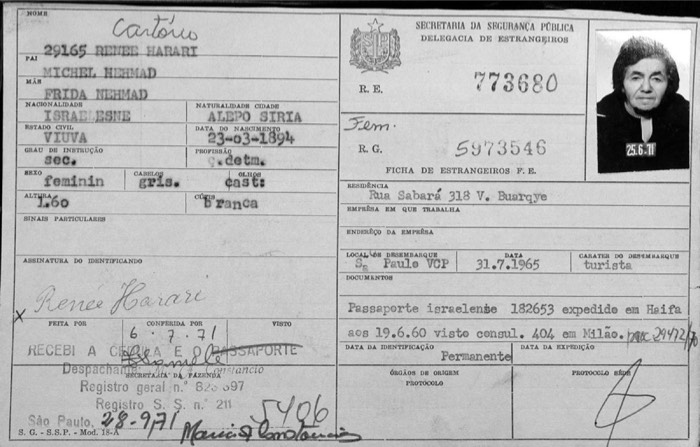 NOME
Cartório
29165 RENEE HARARI
PAI
MICHEL NEHMAD
MÃE
FRIDA NEHMAD
NACIONALIDADE
NATURALIDADE CIDADE
ISRAELESNE
ALEPO SIRIA
ESTADO CIVIL
DATA DO NASCIMENTO
VIUVA
23-03-1894
GRAU DE INSTRUÇÃO
PROFISSÃO
sec.
p.detm.
SEXO
CABELOS
OLHOS
feminin
gris.
cast:
ALTURA
CÚTIS
1.60
Branca
SINAIS PARTICULARES
ASSINATURA DO IDENTIFICANDO
Renée Harari
x
FEITA POR
CONFERIDA POR
VISTO
6.7.71
RECEBI A CÉDULA E O PASSAPORTE
Despachante
Constancio
SECRETARIA DA FAZENDA
Registro geral n.° 823 597
Registro S. S. n.° 211
São Paulo, 28-9/71
5406
S. G. - S.S.P. - Mod. 18-A
SECRETARIA DA SEGURANÇA PÚBLICA
DELEGACIA DE ESTRANGEIROS
R. E. 773680
Fem.
R. G. 5973546
FICHA DE ESTRANGEIROS F. E.
25.6.71
RESIDÊNCIA
Rua Sabará 318 V. Buarqye
EMPRÊSA EM QUE TRABALHA
ENDERÊÇO DA EMPRÊSA
LOCAL DE DESEMBARQUE
DATA
CARATER DO DESEMBARQUE
S. Paulo VCP
31.7.1965
turista
DOCUMENTOS
Passaporte israelense 182653 expedido em Haifa
aos 19.6.60 visto consul. 404 em Milão. 29472/70
DATA DA IDENTIFICAÇÃO
DATA DA EXPEDIÇÃO
Permanente
ÓRGÃOS DE ORIGEM
PROTOCOLO
PROTOCOLO